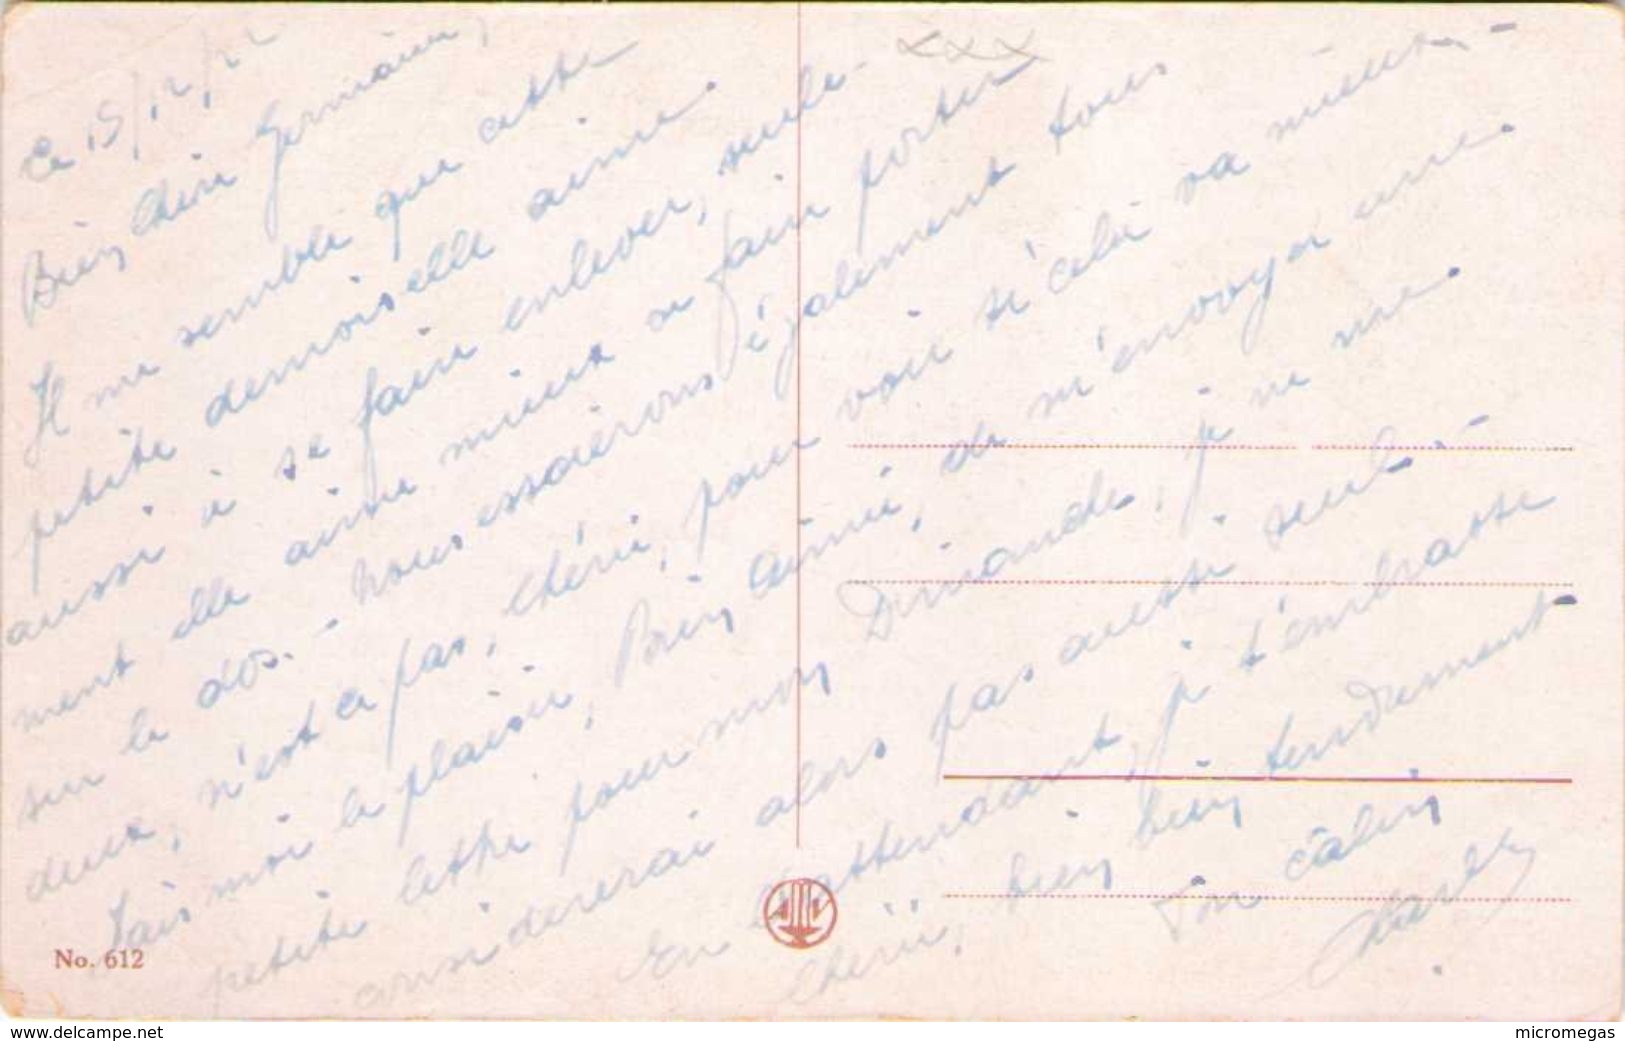 Ce 15/12/12
Bien chère Germaine,
Il me semble que cette
petite demoiselle aime
aussi à se faire enlever, seule-
ment elle aime mieux se faire porter
sur le dos. - Nous essaierons également tous
deux, n'est ce pas, chérie, pour voir si celà va mieux -
Fais moi le plaisir, Bien aimée, de m'envoyer une
petite lettre pour mon Dimanche, je ne me
considererai alors pas aussi seul -
En attendant, je t'embrasse
chérie, bien bien tendrement
Ton câlin
Charles
xxx
No. 612
delcampe.net
micromegas